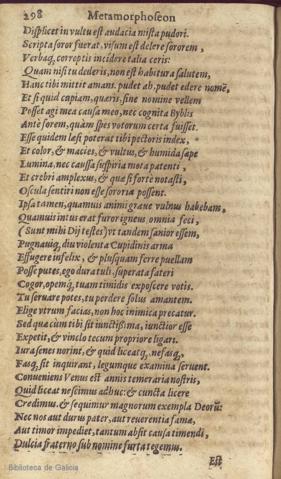 298 Metamorphoseon
Displicet in vultu est audacia mista pudori.
Scripta soror fuerat, visum est delere sororem,
Verbaq́; correptis incidere talia ceris:
Quam nisi tu dederis, non est habitura salutem,
Hanc tibi mittit amans. pudet ah, pudet edere nomẽ,
Et si quid cupiam, quæris, sine nomine vellem
Posset agi mea causa meo, nec cognita Byblis
Ante forem, quàm spes votorum certa fuisset.
Esse quidem læsi poterat tibi pectoris index,
Et color, & macies, & vultus, & humida sæpe
Lumina, nec caussa suspiria mota patenti,
Et crebri amplexus, & quæ si fortè notasti,
Oscula sentiri non esse sororia possent.
Ipsa tamen, quamuis animi graue vulnus habebam,
Quamuis intus erat furor igneus omnia feci,
(Sunt mihi Dij testes) vt tandem sanior essem,
Pugnauiq́; diu violenta Cupidinis arma
Effugere infelix, & plusquam ferre puellam
Posse putes, ego dura tuli. superata fateri
Cogor, opemq́; tuam timidis exposcere votis.
Tu seruare potes, tu perdere solus amantem.
Elige vtrum facias, non hoc inimica precatur.
Sed quæ cum tibi sit iunctissima, iunctior esse
Expetit, & vinclo tecum propriore ligari.
Iura senes norint, & quid liceatq́;, nefasq́;,
Fasq́; sit inquirant, legumque examina seruent.
Conueniens Venus est annis temeraria nostris,
Quid liceat nescimus adhuc: & cuncta licere
Credimus. & sequimur magnorum exempla Deorũ:
Nec nos aut durus pater, aut reuerentia famæ,
Aut timor impediet, tantum absit causa timendi,
Dulcia fraterno sub nomine furta tegemus.
Est
Biblioteca de Galicia